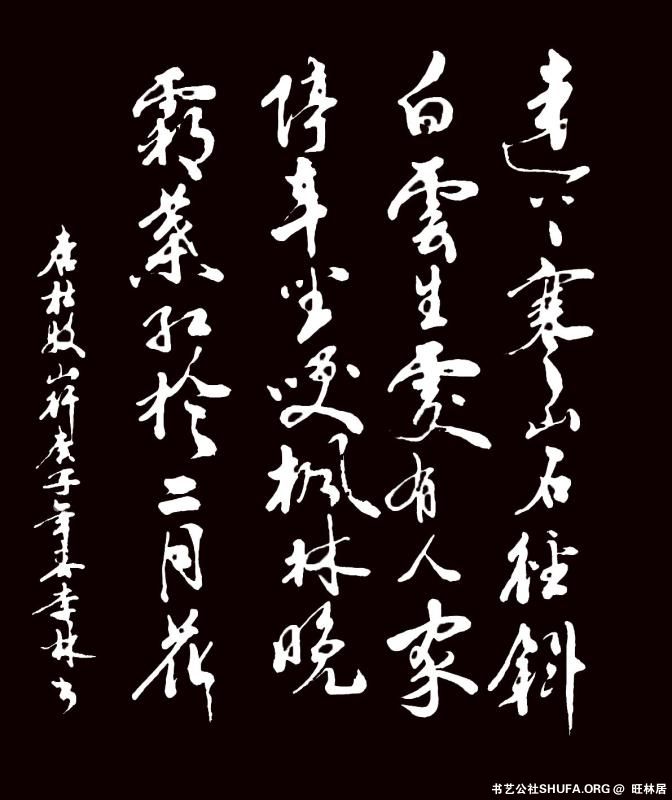 遠上寒山石徑斜
白雲生處有人家
停車坐愛楓林晚
霜葉紅於二月花
唐杜牧山行庚子年春李林书
书艺公社SHUFA.ORG @ 旺林居